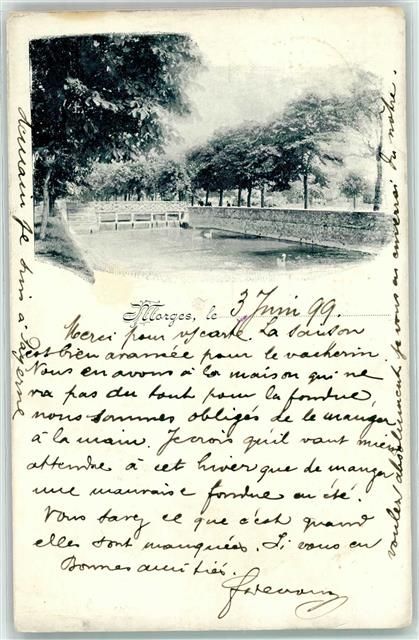 Morges, le 3 Juin 99.
Merci pour v/carte. La saison
est bien avancée pour le vacherin.
Nous en avons à la maison qui ne
va pas du tout pour la fondue,
nous sommes obligés de le manger
à la main. Je crois qu'il vaut mieux
attendre à cet hiver que de manger
une mauvaise fondue en été.
Vous savez ce que c'est quand
elles sont manquées. Si vous en
voulez absolument je vous en enverrai du notre.
Bonnes amitiés.
Demain je suis à Payerne